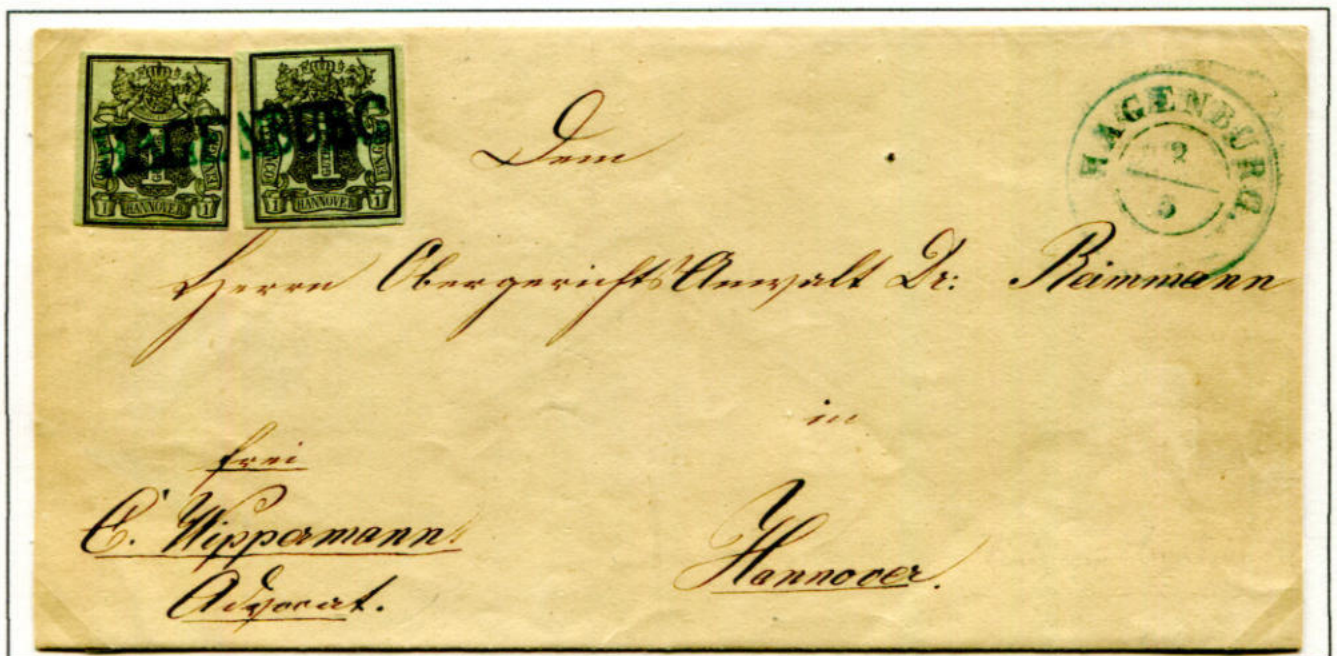 HAGENBURG
1 HANNOVER 1
1 HANNOVER 1
HAGENBURG.
2
5
Dem
Herrn Obergerichts Anwalt Dr: Reimmann
in
Hannover.
frei
C. Wippermann
Advocat.